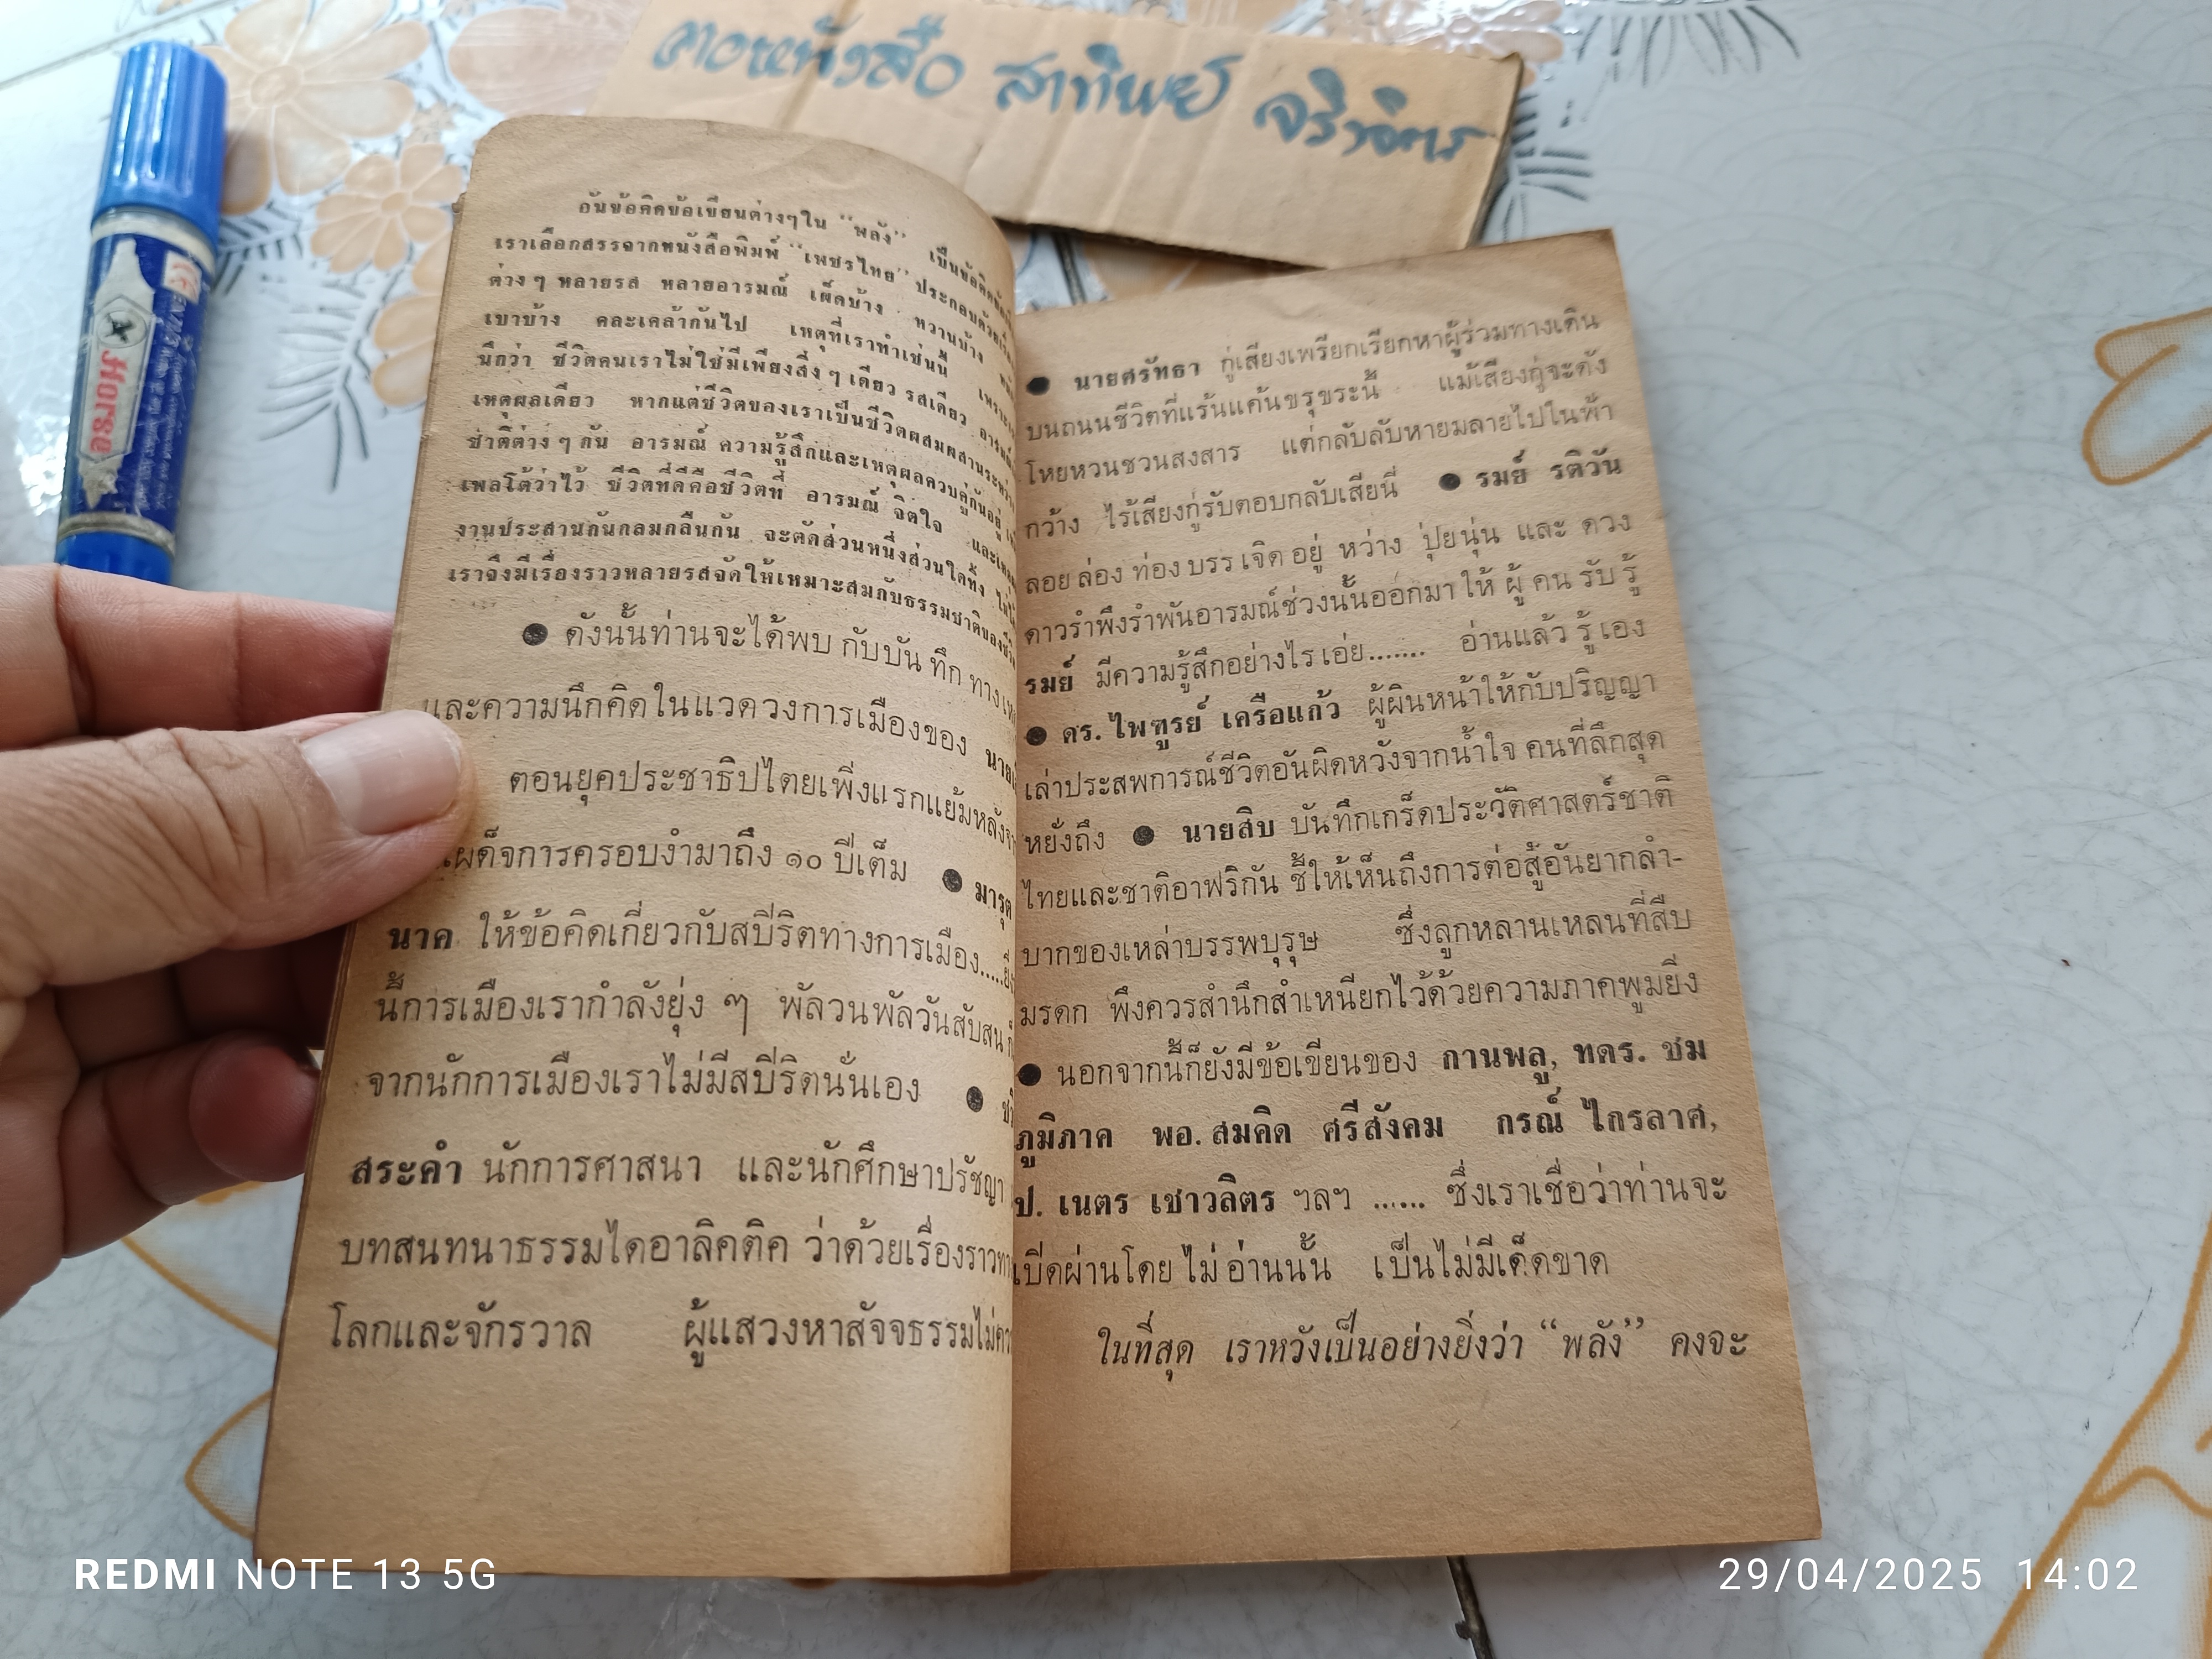 ดาวหนังสือ สาทิพย์ จริงจิตร
Horse
อันข้อคิดข้อเขียนต่างๆใน “พลัง” เป็นข้อคิด
เราเลือกสรรจากหนังสือพิมพ์ “เพชรไทย” ประกอบด้วย
ต่าง ๆ หลายรส หลายอารมณ์ เผ็ดบ้าง หวานบ้าง
เบาบ้าง คละเคล้ากันไป เหตุที่เราทำเช่นนี้ เพราะ
นึกว่า ชีวิตคนเราไม่ใช่มีเพียงสิ่ง ๆ เดียว รสเดียว
เหตุผลเดียว หากแต่ชีวิตของเราเป็นชีวิตผสมผสานระหว่าง
ชาติต่าง ๆ กัน อารมณ์ ความรู้สึกและเหตุผลควบคู่กันอยู่
เพลโต้ว่าไว้ ชีวิตที่ดีคือชีวิตที่ อารมณ์ จิตใจ
งานประสานกันกลมกลืนกัน จะตัดส่วนหนึ่งส่วนใดทิ้ง
เราจึงมีเรื่องราวหลายรสจัดให้เหมาะสมกับธรรมชาติของชีวิต
● ดังนั้นท่านจะได้พบ กับบัน ทึก ทาง
และความนึกคิดในแวดวงการเมืองของ
ตอนยุคประชาธิปไตยเพิ่งแรกแย้มหลัง
เผด็จการครอบงำมาถึง ๑๐ ปีเต็ม ● มารุต
นาค ให้ข้อคิดเกี่ยวกับสปิริตทางการเมือง....
นี้การเมืองเรากำลังยุ่ง ๆ พัลวนพัลวันสับสน
จากนักการเมืองเราไม่มีสปิริตนั่นเอง ●
สระคำ นักการศาสนา และนักศึกษาปรัชญา
บทสนทนาธรรมไดอาลิคติค ว่าด้วยเรื่องราว
โลกและจักรวาล ผู้แสวงหาสัจจธรรมไม่
● นายศรัทธา กู่เสียงเพรียกเรียกหาผู้ร่วมทางเดิน
บนถนนชีวิตที่แร้นแค้นขรุขระนี้ แม้เสียงกู่จะดัง
โหยหวนชวนสงสาร แต่กลับลับหายมลายไปในฟ้า
กว้าง ไร้เสียงกู่รับตอบกลับเสียนี่ ● รมย์ รติวัน
ลอย ล่อง ท่อง บรร เจิด อยู่ หว่าง ปุยนุ่น และ ดวง
ดาวรำพึงรำพันอารมณ์ช่วงนั้นออกมา ให้ ผู้ คน รับ รู้
รมย์ มีความรู้สึกอย่างไร เอ่ย....... อ่านแล้ว รู้ เอง
● ดร. ไพฑูรย์ เครือแก้ว ผู้ผินหน้าให้กับปริญญา
เล่าประสพการณ์ชีวิตอันผิดหวังจากน้ำใจ คนที่ลึกสุด
หยั่งถึง ● นายสิบ บันทึกเกร็ดประวัติศาสตร์ชาติ
ไทยและชาติอาฟริกัน ชี้ให้เห็นถึงการต่อสู้อันยากลำ-
บากของเหล่าบรรพบุรุษ ซึ่งลูกหลานเหลนที่สืบ
มรดก พึงควรสำนึกสำเหนียกไว้ด้วยความภาคพูมยิ่ง
● นอกจากนี้ก็ยังมีข้อเขียนของ กานพลู, ทดร. ชม
ภูมิภาค พอ. สมคิด ศรีสังคม กรณ์ ไกรลาศ,
ป. เนตร เชาวลิตร ฯลฯ ...... ซึ่งเราเชื่อว่าท่านจะ
เปิดผ่านโดย ไม่ อ่านนั้น เป็นไม่มีเด็ดขาด
ในที่สุด เราหวังเป็นอย่างยิ่งว่า “พลัง” คงจะ
REDMI NOTE 13 5G
29/04/2025 14:02